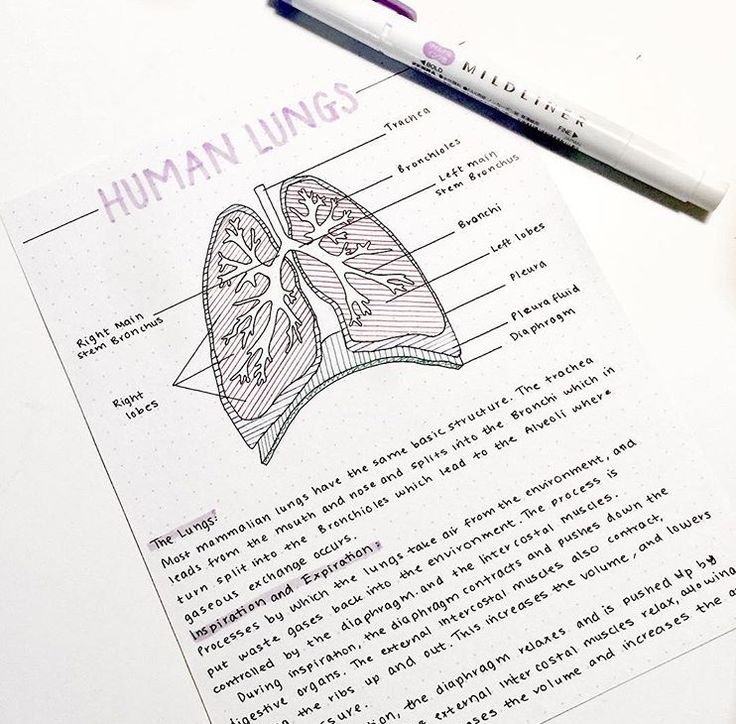 MILDLINER
BOLD
FINE
HUMAN LUNGS
Trachea
Bronchioles
Left main
stem Bronchus
Bronchi
Left lobes
Pleura
Pleura fluid
Diaphragm
Right Main
stem Bronchus
Right
lobes
The Lungs:
Most mammalian lungs have the same basic structure. The trachea
leads from the mouth and nose and splits into the Bronchi which in
turn split into the Bronchioles which lead to the Alveoli where
gaseous exchange occurs.
Inspiration and Expiration:
Processes by which the lungs take air from the environment, and
put waste gases back into the environment. The process is
controlled by the diaphragm and the intercostal muscles.
During inspiration, the diaphragm contracts and pushes down the
digestive organs. The external intercostal muscles also contract,
the ribs up and out. This increases the volume, and lowers
the diaphragm relaxes and is pushed up by
external intercostal muscles relax, allowing
the volume and increases the